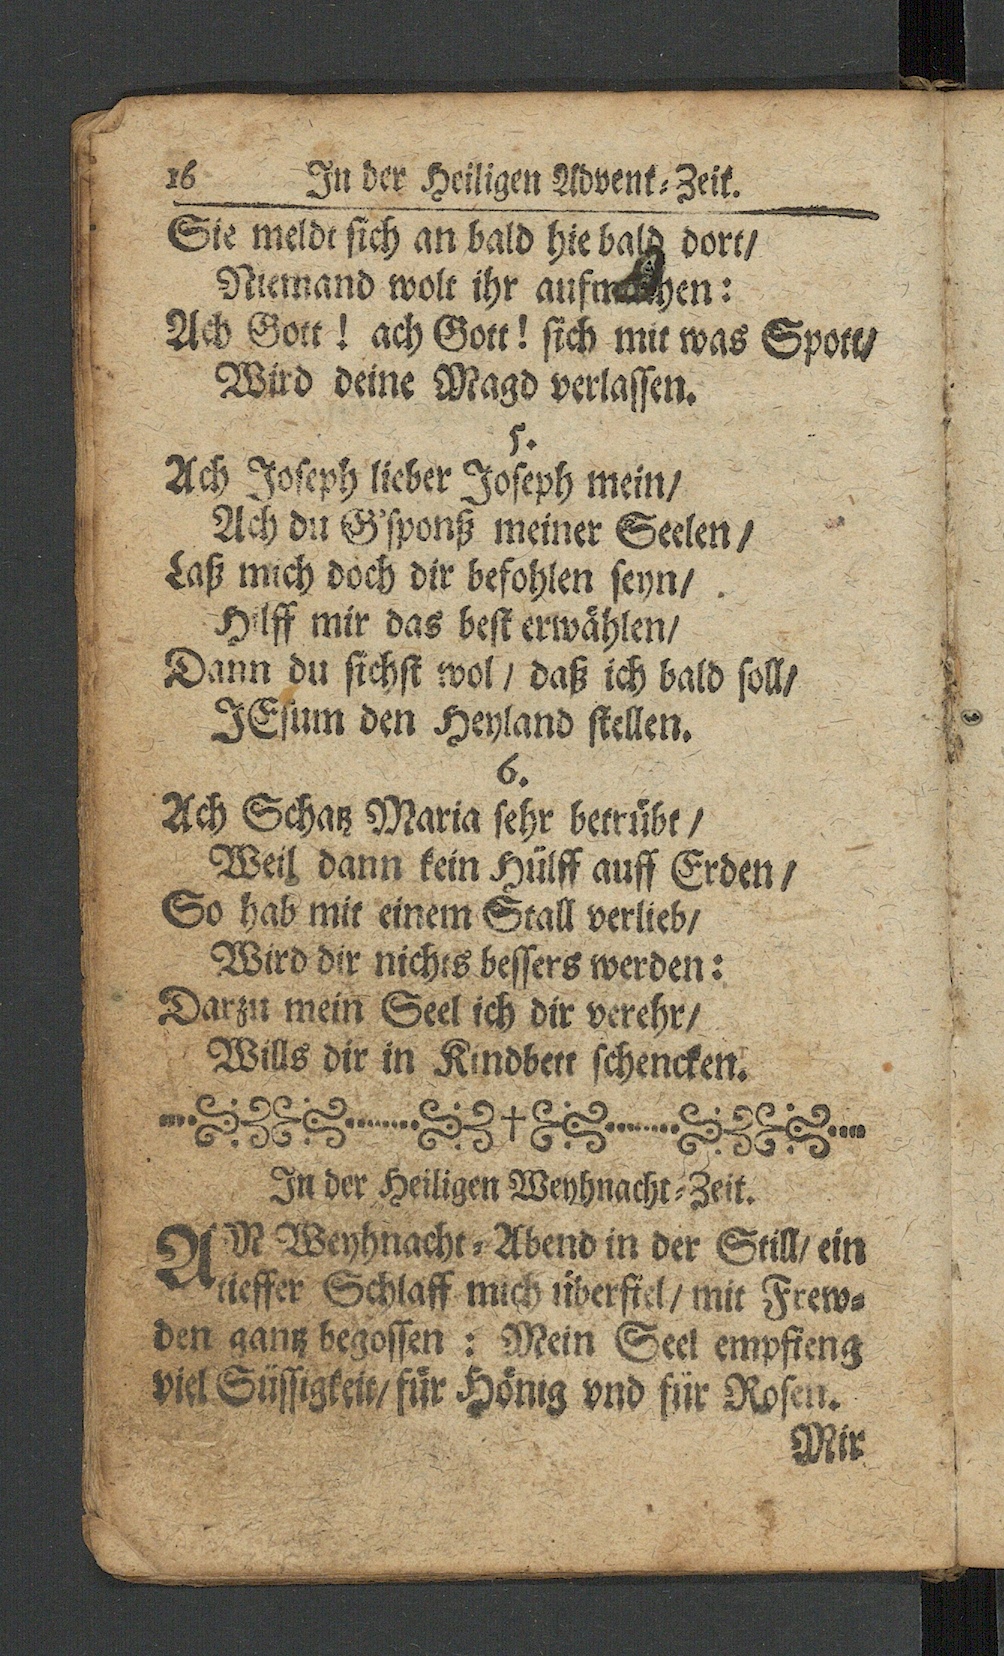 16 In der Heiligen Advent-Zeit.
Sie meldt sich an bald hie bald dort/
Niemand wolt ihr aufmachen:
Ach Gott! ach Gott! sich mit was Spott/
Wird deine Magd verlassen.
5.
Ach Joseph lieber Joseph mein/
Ach du G'sponß meiner Seelen/
Laß mich doch dir befohlen seyn/
Hilff mir das best erwählen/
Dann du sichst wol/ daß ich bald soll/
JEsum den Heyland stellen.
6.
Ach Schatz Maria sehr betrübt/
Weil dann kein Hülff auff Erden/
So hab mit einem Stall verlieb/
Wird dir nichts bessers werden:
Darzu mein Seel ich dir verehr/
Wills dir in Kindbett schencken.
In der Heiligen Weyhnacht-Zeit.
AN Weyhnacht-Abend in der Still/ ein
tieffer Schlaff mich überfiel/ mit Frew-
den gantz begossen: Mein Seel empfieng
viel Süssigkeit/ für Hönig vnd für Rosen.
Mir